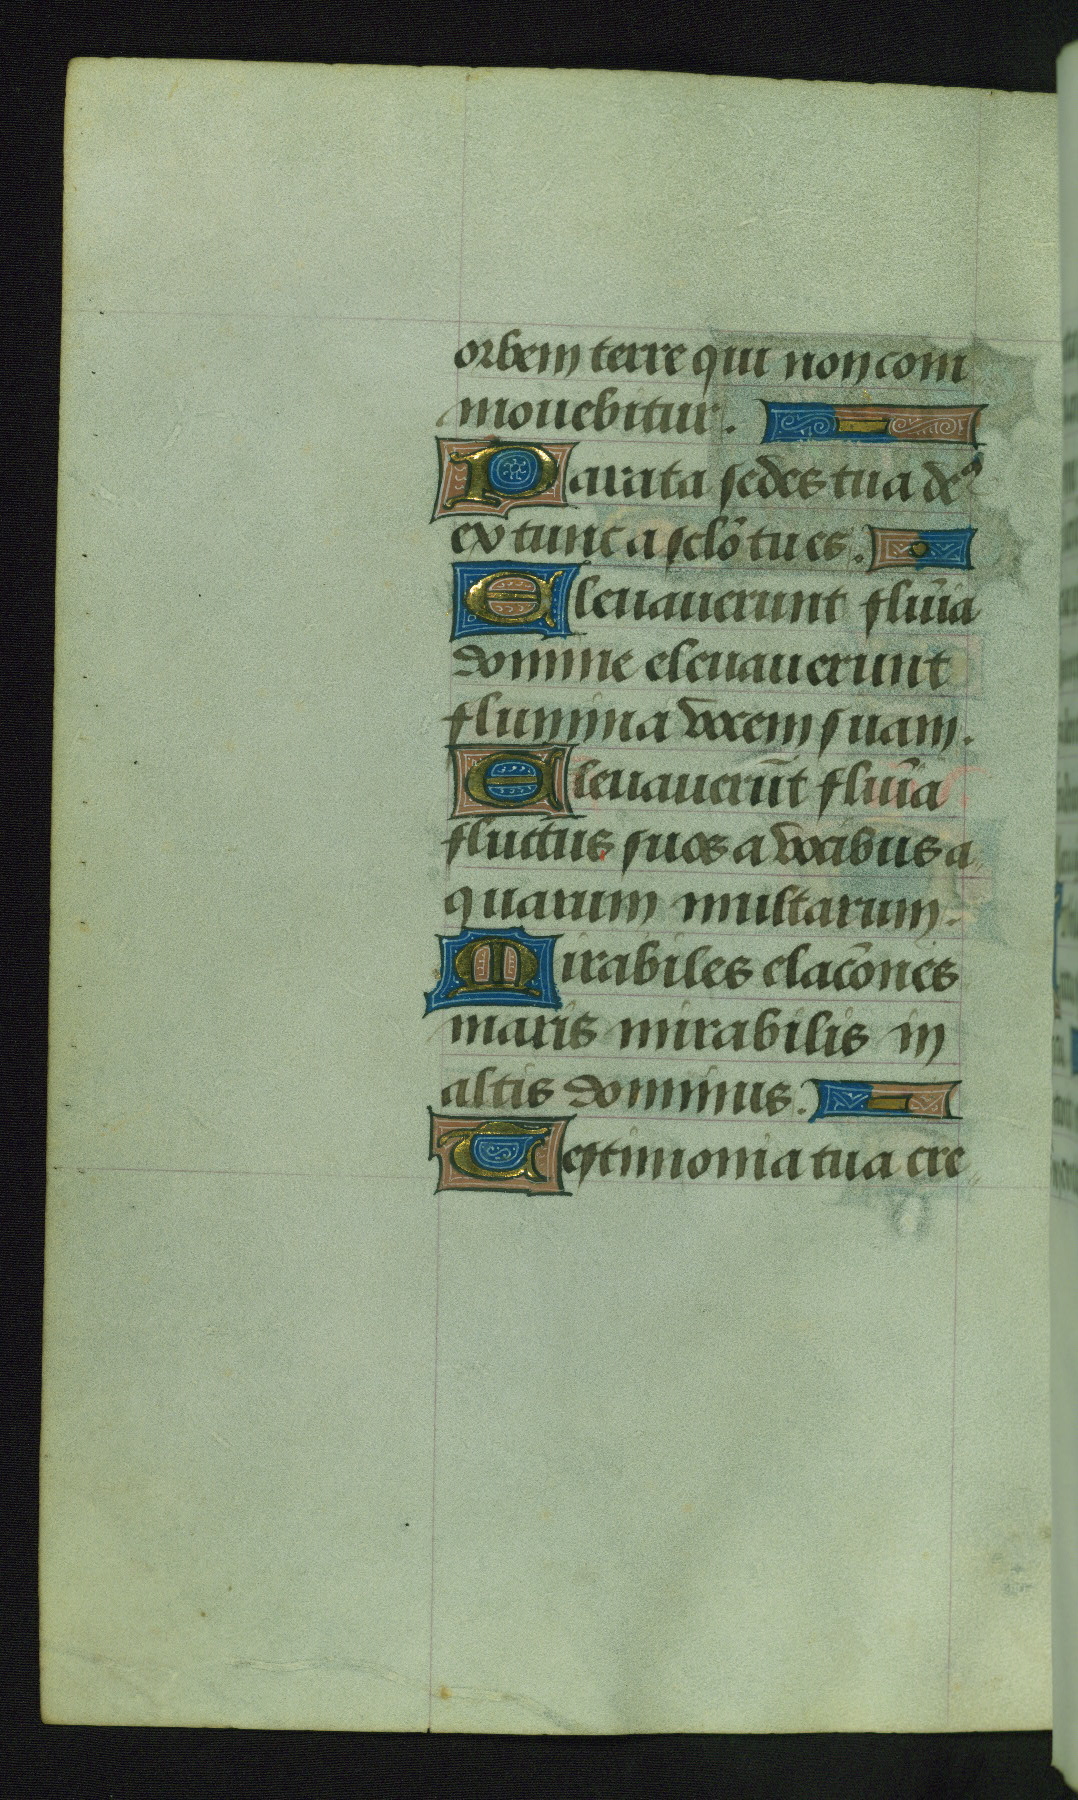 orbem terre qui non com
mouebitur.
Parata sedes tua deꝰ
ex tunc a sclõ tu es.
Eleuauerunt flum̃ia
domine eleuauerunt
flumina vocem suam.
Eleuauerũt flum̃ia
fluctus suos a vocibus a
quarum multarum.
Mirabiles elac̃ones
maris mirabilis in
altis dominus.
Testimonia tua cre